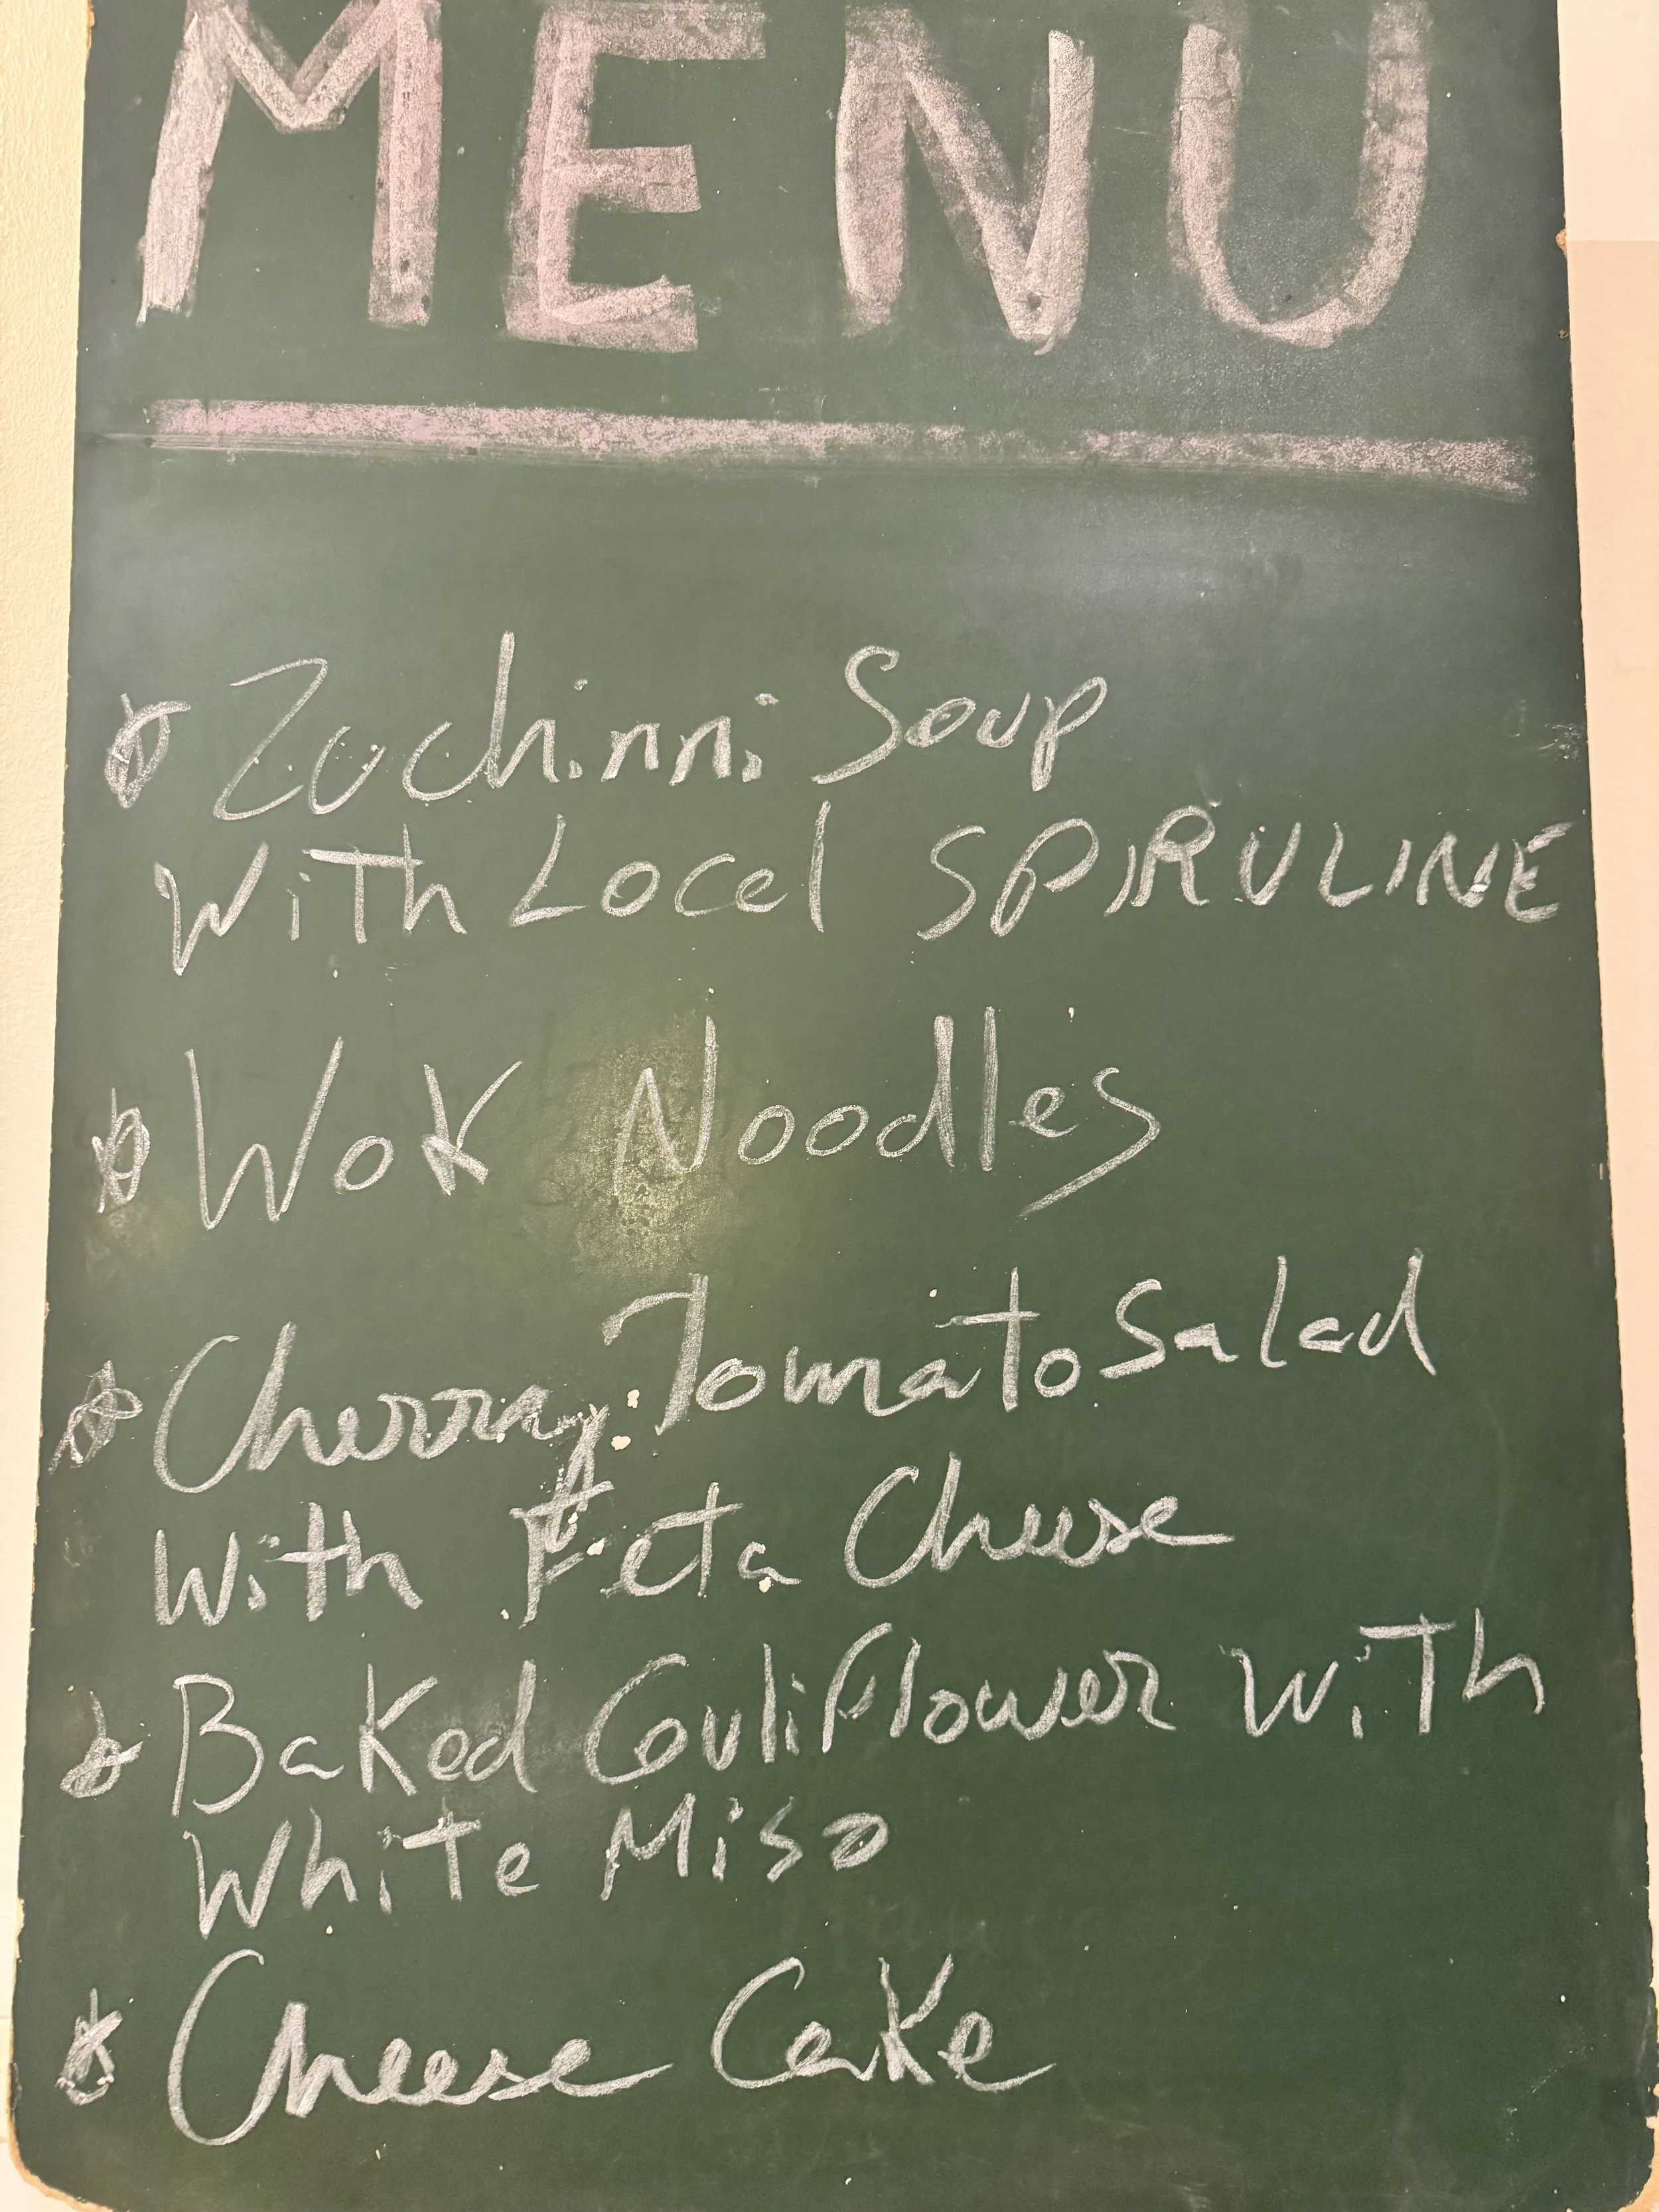 MENU
Zuchinni Soup
With Local SPIRULINE
Wok Noodles
Cherry Tomato Salad
With Feta Cheese
Baked Cauliflower With
White Miso
Cheese Cake